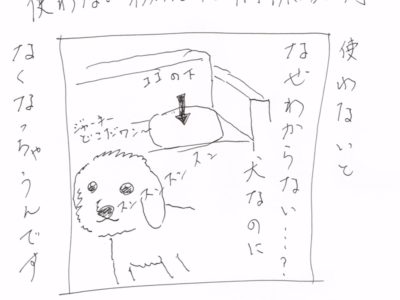 使わない
使わないと
なぜわからない…?
犬なのに
ココの下
ジャーキー
どこだワン～
スン
スン
スン
スン
なくなっちゃうんです